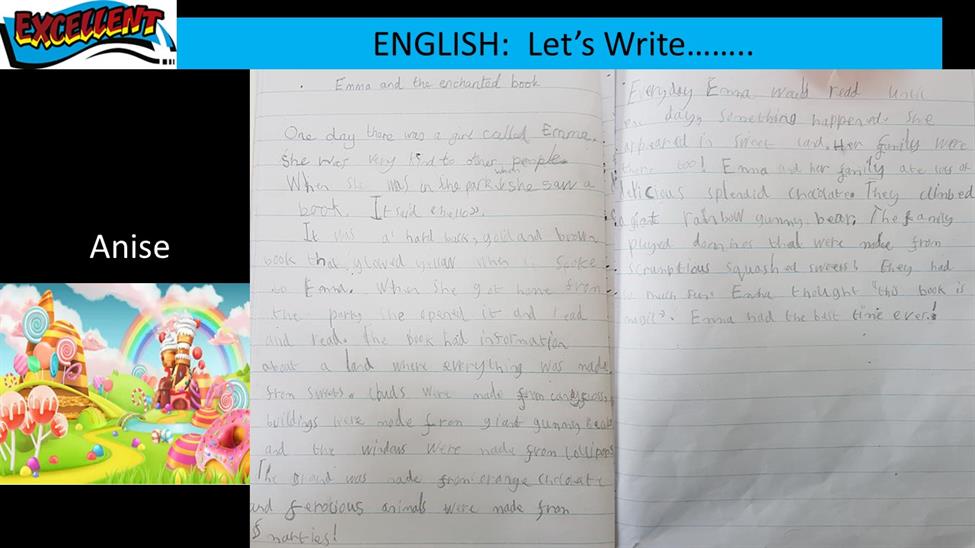 EXCELLENT
ENGLISH: Let's Write……..
Anise
Emma and the enchanted book
One day there was a girl called Emma.
She was very kind to other people.
When she was in the park when she saw a
book. It said "hello".
It was a hard back, gold and brown
book that, glowed yellow when it spoke
to Emma. When she got home from
the park, she opened it and read
and read. The book had information
about a land where everything was made
from sweets. Clouds were made from candyfloss,
buildings were made from giant gummy bears
and the windows were made from lollipops.
The was made from orange chocolate
and ferotious animals were made from
Smarties!
Everyday Emma would read until
one day, something happened. She
appeared in sweet land. Her family were
there too! Emma and her family ate lots of
delicious splendid chocolate. They climbed
a giant rainbow gummy bear. The family
played dominos that were made from
scrumptious squashed sweets! They had
so much fun. Emma thought "this book is
magic". Emma had the best time ever!